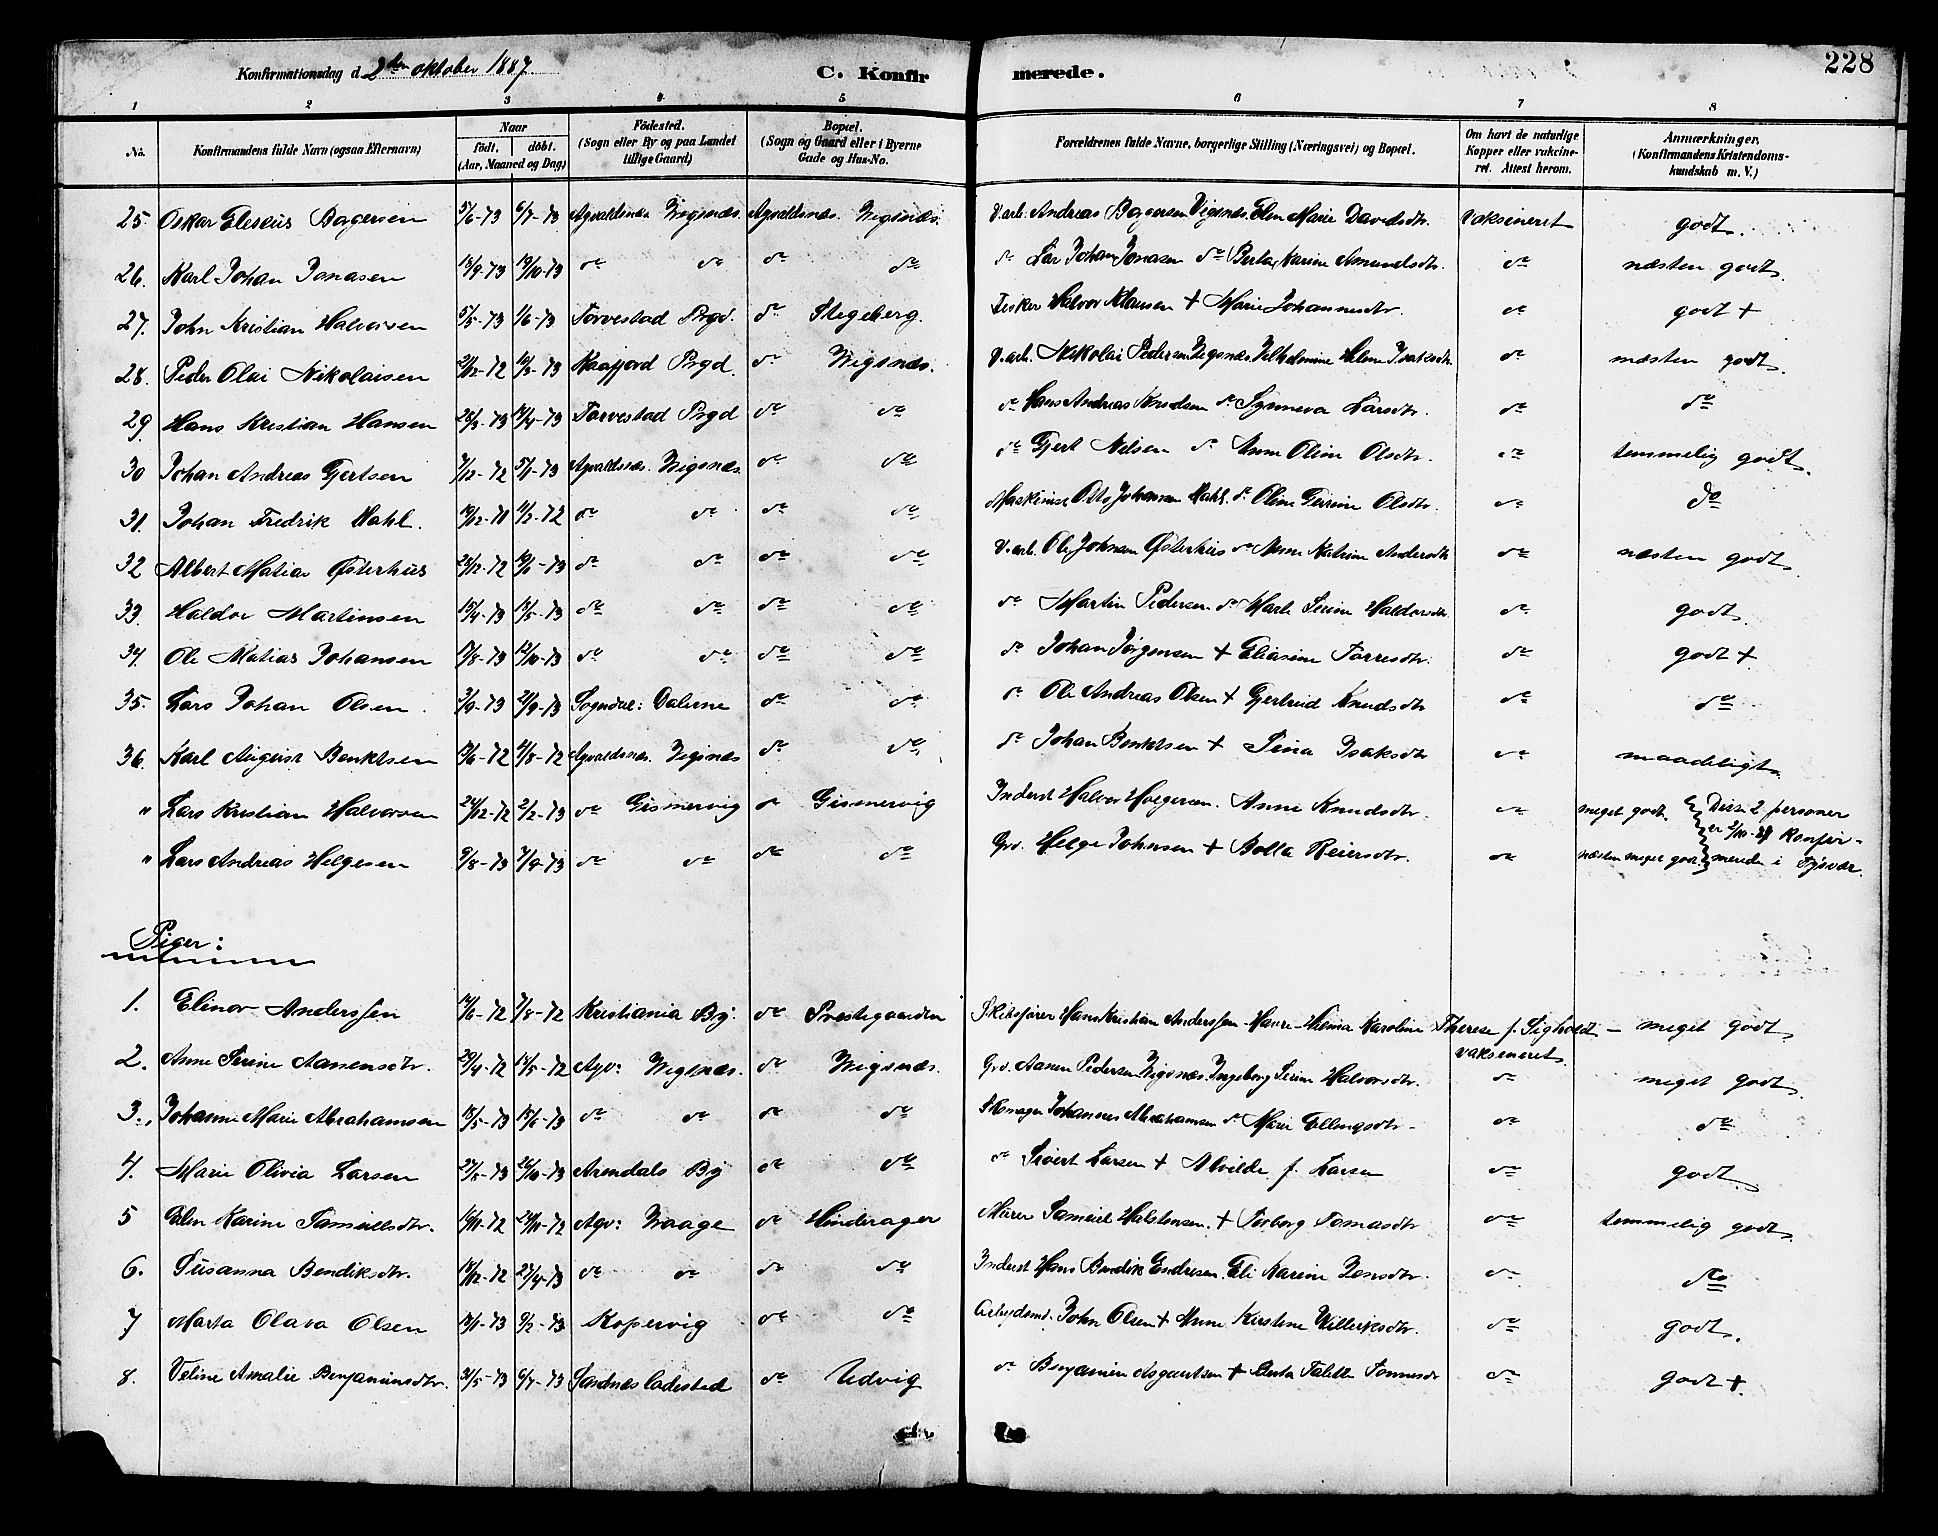 Konfirmationsdag d. 2den oktober 1887 C. Konfirmerede. 228
1 2 3 4 5 6 7 8
No. Konfirmandens fulde Navn (ogsaa Efternavn) Naar födt. döbt. (Aar, Maaned og Dag) Födested. (Sogn eller By og paa Landet tillige Gaard) Bopæl. (Sogn og Gaard eller i Byerne Gade og Hus-No. Forældrenes fulde Navne, borgerlige Stilling (Næringsvei) og Bopæl. Om havt de naturlige Kopper eller vakcineret. Attest herom. Anmærkninger. (Konfirmandens Kristendomskundskab m. V.)
25. Oskar Eleseus Bøgersen 5/6-73 6/7-73 Agvaldsnæs Wigsnæs. Agvaldsnæs. Wigsnæs. V. arb. Andreas Bøgersen Vigsnæs. Elen Marie Davidsdtr. Vaksineret godt.
26. Karl Johan Jonasen 18/9-73 19/10-73 do do do do do Lar Johan Jonasen do Berta Karine Amundsdtr. do næsten godt.
27. John Kristian Halvorsen 5/5-73 1/6-73 Torvestad Prgd. do Stegeberg. Fisker Halvor Klausen + Marie Johannesdtr. do godt +
28. Peder Olai Nikolaisen 21/12-72 16/3-73 Raafjord Prgd. do Wigsnæs. V. arb. Nikolai Pedersen Vigsnæs. Vilhelmine Helene Isaksdtr. do næsten godt.
29. Hans Kristian Hansen 28/3-73 14/4-73 Torvestad Prgd do do do Hans Andreas Knudsen do Synneva Larsdtr. do do
30 Johan Andreas Gjertsen 7/12-72 5/1-73 Agvaldsnæs. Wigsnæs. do do do Gjert Nilsen do Anne Oline Olsdtr. do temmelig godt.
31. Johan Fredrik Wahl. 19/12-71 11/2-72 do do do do Maskinist Otto Johansen Wahl. do Oline Serine Olsdtr. do do
32 Albert Matias Østerhus 28/12-72 19/1-73 do do do do V. arb. Ole Johnsen Østerhus do Anne Katrine Andersdtr do næsten godt.
33. Haldor Martinsen 15/4-73 18/5-73 do do do do do Martin Pedersen do Marte Serine Haldorsdtr. do godt.
34. Ole Matias Johansen 17/8-73 12/10-73 do do do do do Johan Jørgensen + Eliasine Torresdtr. do godt +
35. Lars Johan Olsen 3/9-73 21/9-73 Sogndal: Dalerne do do do Ole Andreas Olsen + Gjertrud Knudsdtr do do
36. Karl August Benktsen 13/6-72 4/8-72 Agvaldsnæs. Vigsnæs do do do Johan Benktsen + Sina Isaksdtr do maadeligt.
" Lars Kristian Halvorsen 24/12-72 2/2-73 do Gismervig do Gismervig Inderst Halvor Holgersen. Anne Knudsdtr. do meget godt. Disse 2 personer er 2/10-87 konfir-
" Lars Andreas Helgesen 9/8-73 7/9-73 do do do do Grd. Helge Johnsen + Bolla Reiersdtr. do næsten meget godt. merede i Tysvær.
Piger:
1. Elinor Anderssen 14/6-72 7/8-72 Kristiania By. do Prestegaarden Skibsfører Hans Kristian Anderssen - Maren - Thema Karoline Therese f. Sigholdt - meget godt
vaksineret
2. Anne Serine Aanensdtr. 20/4-72 14/5-72 Agv: Wigsnæs. do Wigsnæs. Grd. Aanen Pedersen Wigsnæs. Ingeborg Serine Halvorsdtr. do meget godt
3. Johanne Marie Abrahamsen 18/5-73 15/6-73 do do do do Skomager Johannes Abrahamsen do Maren Ellingsdtr - do do
4. Marie Olivia Larsen 27/8-73 26/10-73 Arendals By do do do Sivert Larsen + Alvilde f. Larsen do godt.
5 Elen Karine Samuelsdtr. 10/11-72 24/11-72 Agv: Waage do Hinderager Murer Samuel Halstensen. + Torborg Tomasdtr do temmelig godt
6. Susanna Bendiksdtr. 14/12-72 27/4-73 do do do do Inderst Hans Bendik Endresen. Eli Karine Jensdtr. do do
7 Marta Olava Olsen 13/1-73 9/2-73 Kopervig do do Arbeidsmd. John Olsen + Anne Kirstine Willeriksdtr. do godt.
8. Veline Amalie Benjaminsdtr. 31/5-73 6/7-73 Sandnes ladested do Udvig do Benjamin Asgautsen + Berta Talette Tønnesdr do godt +.